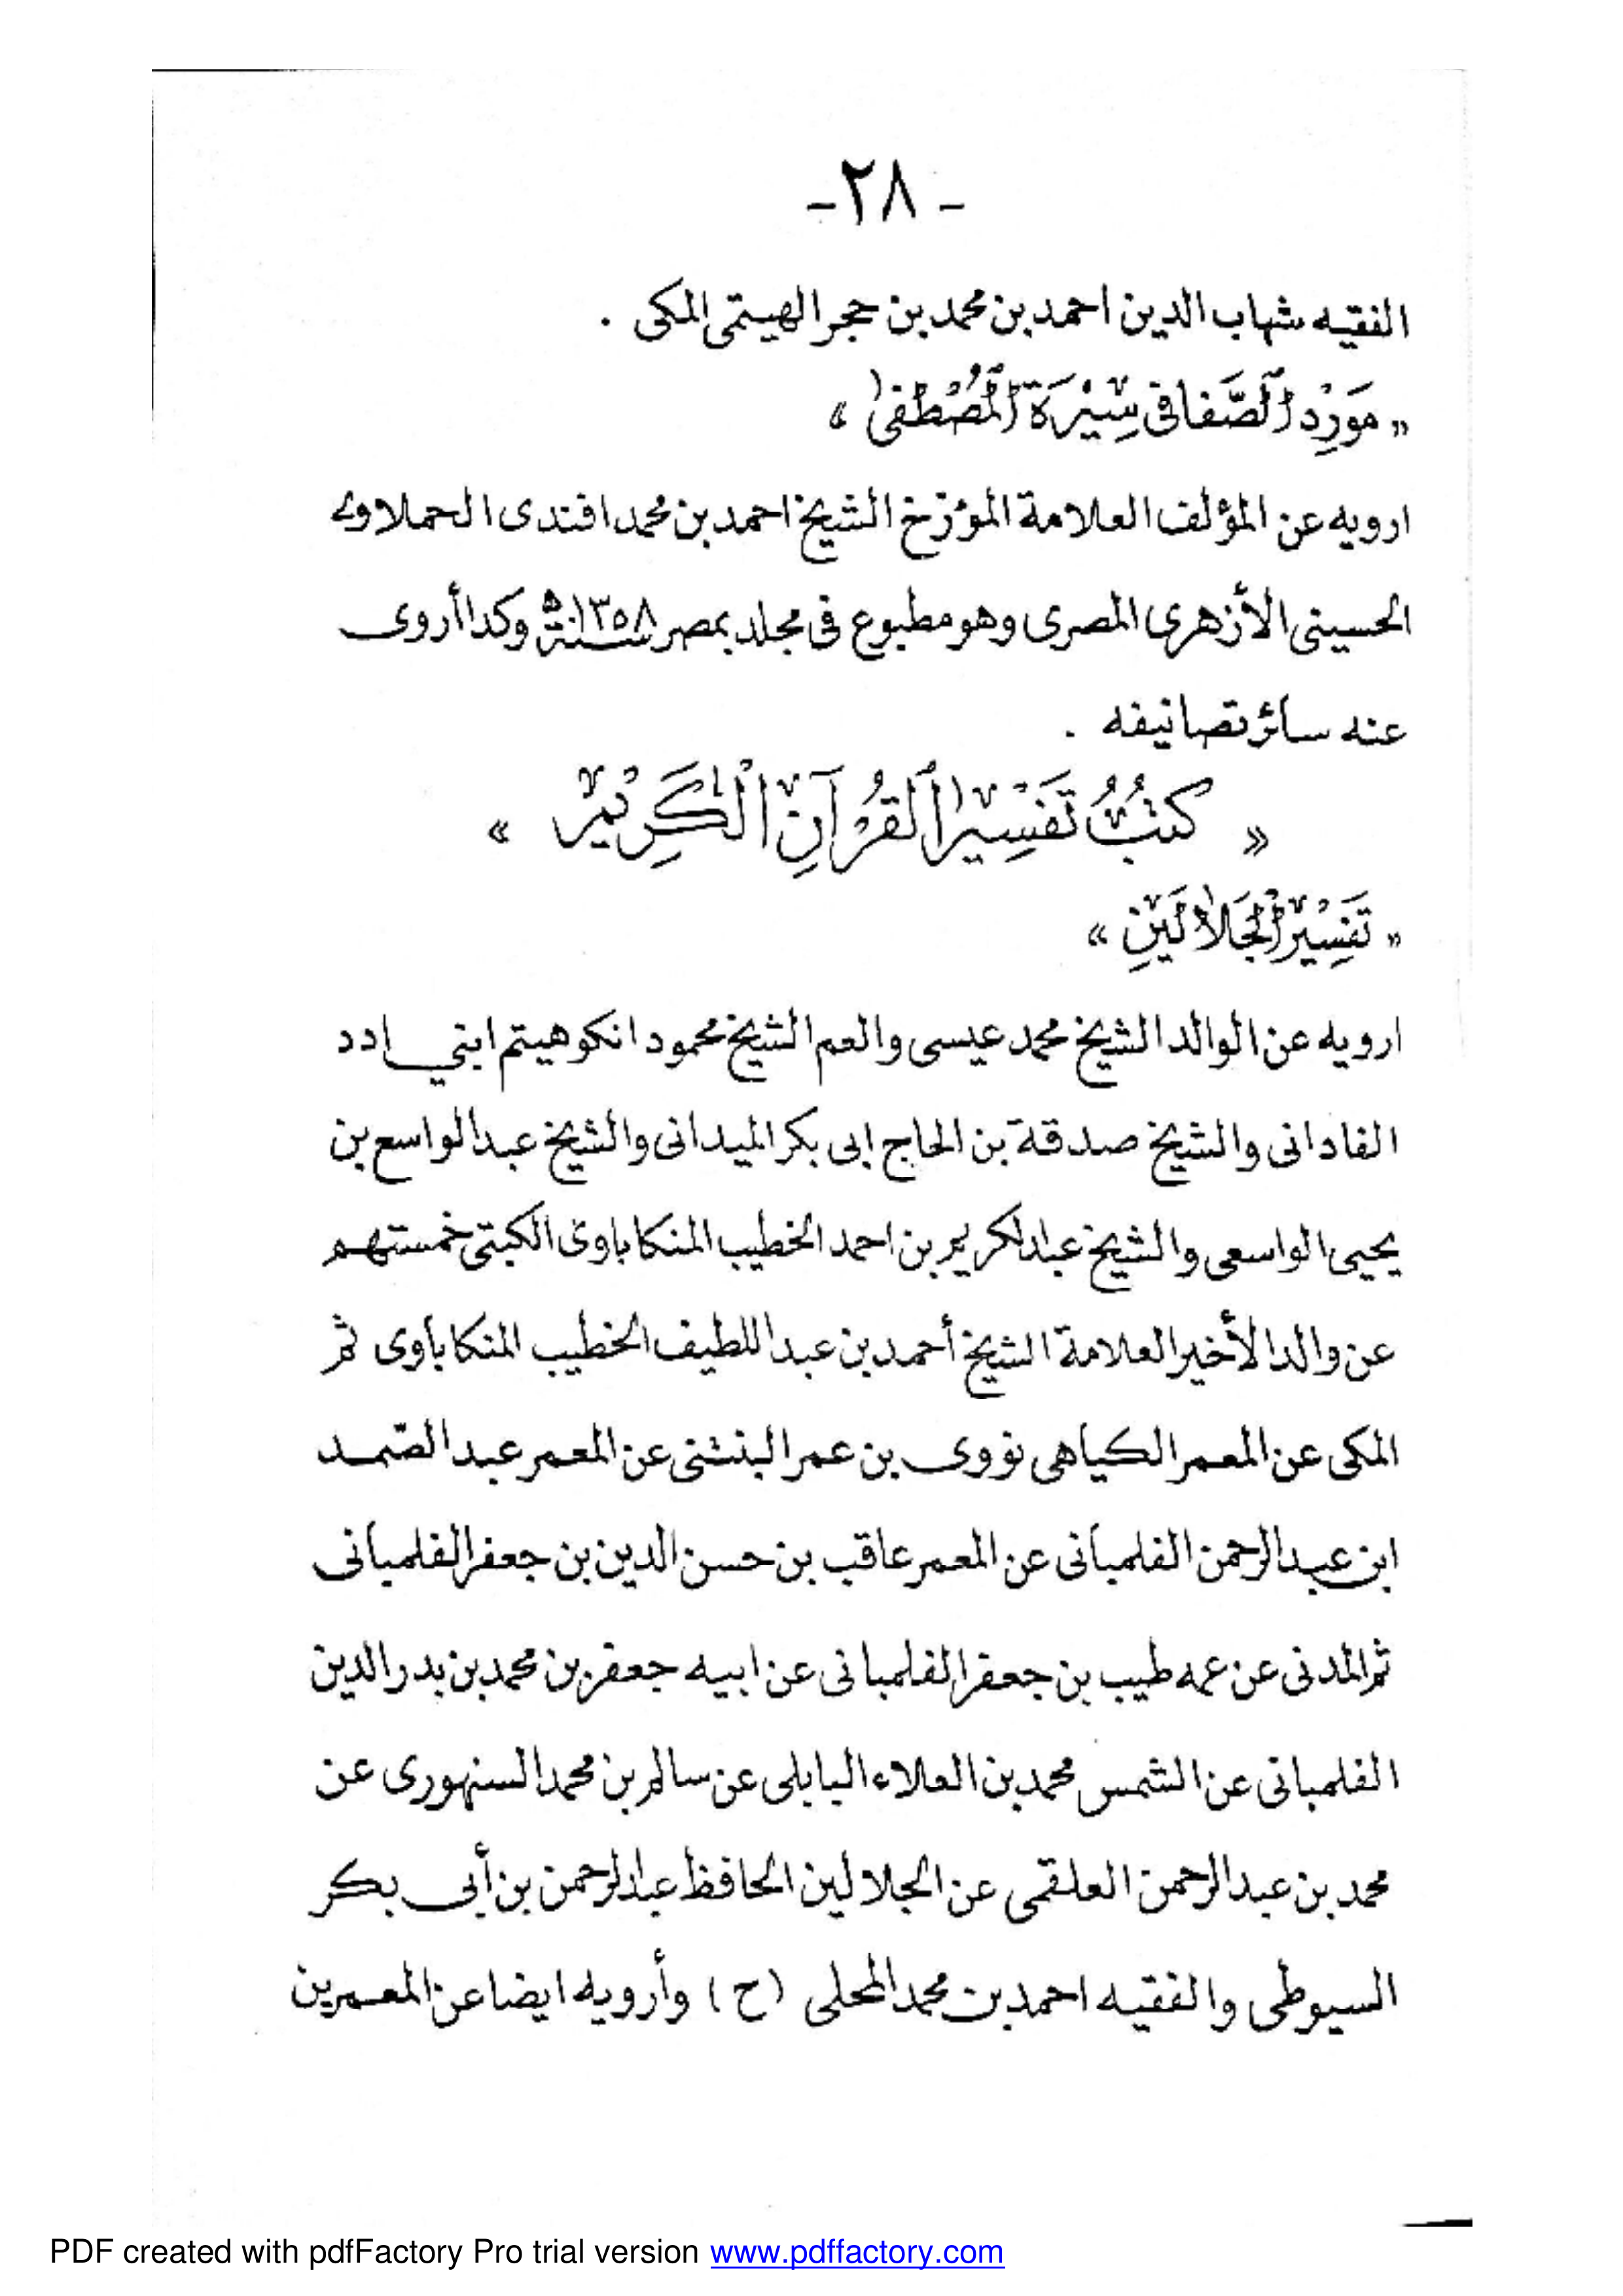 - ٢٨ -
الفقيه شهاب الدين احمد بن محمد بن حجر الهيتمى المكى .
« مَوْرِدُ الصَّفَا فى سِيْرَةِ الْمُصْطَفىٰ »
ارويه عن المؤلف العلامة المؤرخ الشيخ احمد بن محمد افندى الحملاوى
الحسينى الأزهرى المصرى وهو مطبوع فى مجلد بمصر سنة ١٣٥٨ھ وكذا أروى
عنه سائر تصانيفه .
« كُتُبُ تَفْسِيْرِ الْقُرْآنِ الْكَرِيْمِ »
« تَفْسِيْرُ الْجَلاَلَيْنِ »
ارويه عن الوالد الشيخ محمد عيسى والعم الشيخ محمود انكو هيتم ابني ادد
الفادانى والشيخ صدقة بن الحاج ابى بكر الميدانى والشيخ عبد الواسع بن
يحيى الواسعى والشيخ عبد الكريم بن احمد الخطيب المنكاباوى الكبتى خمستهم
عن والد الأخير العلامة الشيخ أحمد بن عبد اللطيف الخطيب المنكاباوى ثم
المكى عن المعمر الكياهى نووى بن عمر البنتنى عن المعمر عبد الصّمد
ابن عبد الرحمن الفلمبانى عن المعمر عاقب بن حسن الدين بن جعفر الفلمبانى
ثم المدنى عن عمه طيب بن جعفر الفلمبانى عن ابيه جعفر بن محمد بن بدر الدين
الفلمبانى عن الشمس محمد بن العلاء البابلى عن سالم بن محمد السنهورى عن
محمد بن عبد الرحمن العلقمى عن الجلالين الحافظ عبد الرحمن بن أبى بكر
السيوطى والفقيه احمد بن محمد المحلى (ح) وأرويه ايضا عن المعمرين
PDF created with pdfFactory Pro trial version www.pdffactory.com